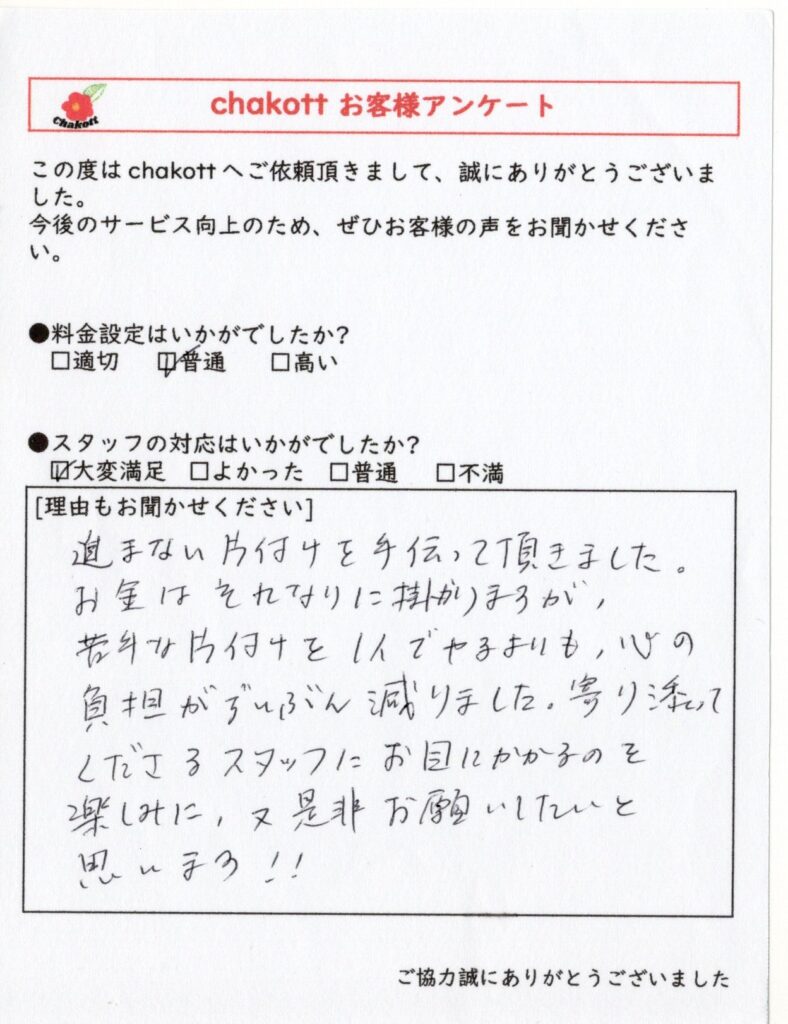 Chakott
chakott お客様アンケート
この度は chakott へご依頼頂きまして、誠にありがとうございま
した。
今後のサービス向上のため、ぜひお客様の声をお聞かせくださ
い。
●料金設定はいかがでしたか?
□適切 ☑普通 □高い
●スタッフの対応はいかがでしたか?
☑大変満足 □よかった □普通 □不満
[理由もお聞かせください]
進まない片付けを手伝って頂きました。
お金はそれなりに掛かりますが、
苦手な片付けを1人でやるよりも、心の
負担がずいぶん減りました。寄り添って
くださるスタッフにお目にかかるのを
楽しみに、又是非お願いしたいと
思います!!
ご協力誠にありがとうございました